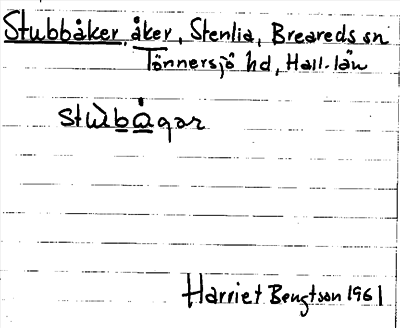 Stubbåker, åker, Stenlia, Breareds sn
Tönnersjö hd, Hall. län
stùbågar
Harriet Bengtson 1961